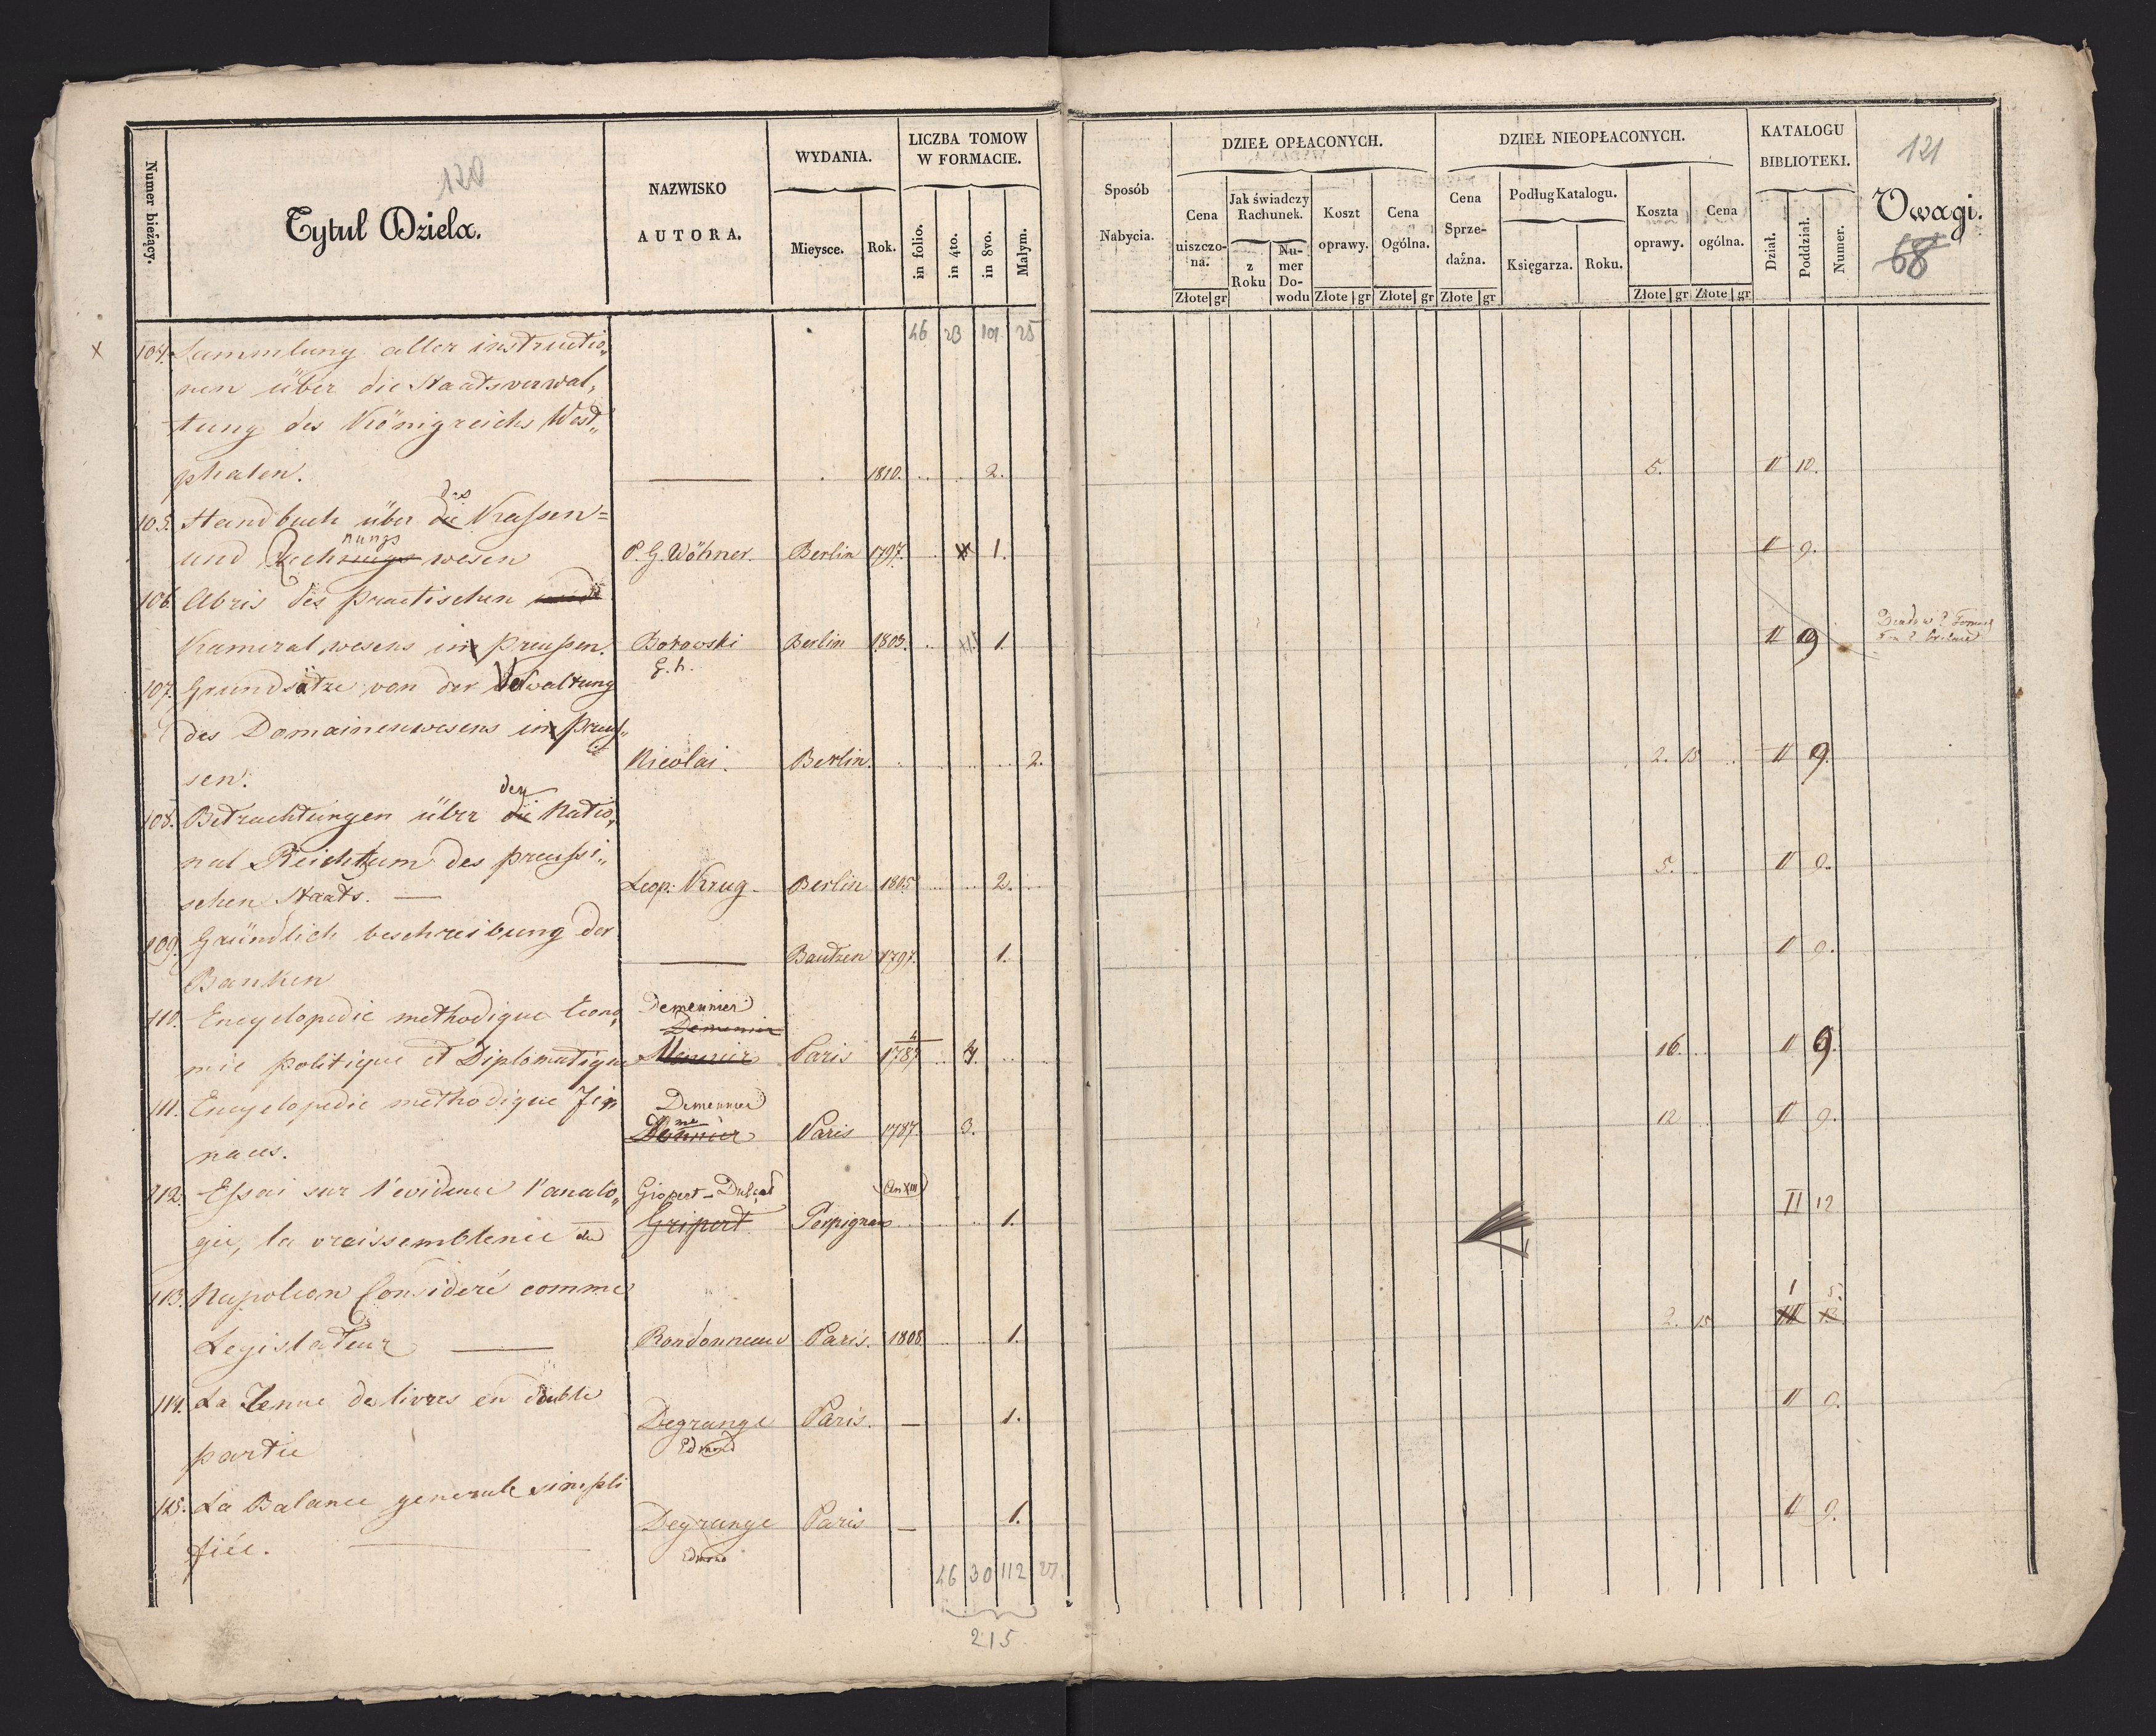 120
Numer bieżący.
Tytuł Dzieła.
NAZWISKO
AUTORA.
WYDANIA.
Mieysce.
Rok.
LICZBA TOMOW
W FORMACIE.
in folio.
in 4to.
in 8vo.
Małym.
46 23 101 25
x 104. Sammlung aller instructio„
nen über die Staatsverwal„
tung des Königreichs West„
phalen. — 1810. 2.
des
105. Handbuch über die Kassen=
nungs
und Rechnugs wesen P. G. Wöhner. Berlin 1797. 1.
106. Abris des practischen
Kameral wesens in Preussen. Borowski Berlin 1805. 1.
G. h.
107. Grundsätze von der Verwaltung
des Domainenwesens in Preus„
sen. Nicolai. Berlin. 2.
den
108. Betrachtungen über die Natio„
nal Reichtum des preussi„
schen Staats. — Leop. Krug Berlin 1805 2.
109. Gründlich beschreibung der
Banken — Bautzen 1797. 1.
110. Encyclopedie methodique Econo„ Demeunier
Demenier
mie politique et Diplomatique Meunier Paris 1784 4.
111. Encyclopedie methodique Fin Demeunier
naces. Paris 1787. 3.
112. Essai sur l'evidence l'analo„ Gispert-Dulçat An XIII
gie, la vraissemblence du Gripert Perpignan 1.
113. Napoleon Consideré comme
Legislateur — Rondonneau Paris. 1808 1.
114. La Tenue de livres en double
partie Degrange Paris. — 1.
Edmond
115. La Balance generale simpli
fiée. — Degrange Paris — 1.
Edmond
46 30 112 27.
215.
121
Sposób
Nabycia.
DZIEŁ OPŁACONYCH.
Cena
uiszczo-
na.
Złote gr
Jak świadczy
Rachunek.
z
Roku
Nu-
mer
Do-
wodu
Koszt
oprawy.
Złote gr
Cena
Ogólna.
Złote gr
DZIEŁ NIEOPŁACONYCH.
Cena
Sprze-
daźna.
Złote gr
Podług Katalogu.
Księgarza.
Roku.
Koszta
oprawy.
Złote gr
Cena
ogólna.
Złote gr
KATALOGU
BIBLIOTEKI.
Dział.
Poddział.
Numer.
Uwagi.
68
5. II 10.
II 9.
II 9
2. 15 II 9.
5. II 9.
II 9.
16. II 9.
12 II 9.
II 12
I 5.
2. 15 III 13.
II 9.
II 9.